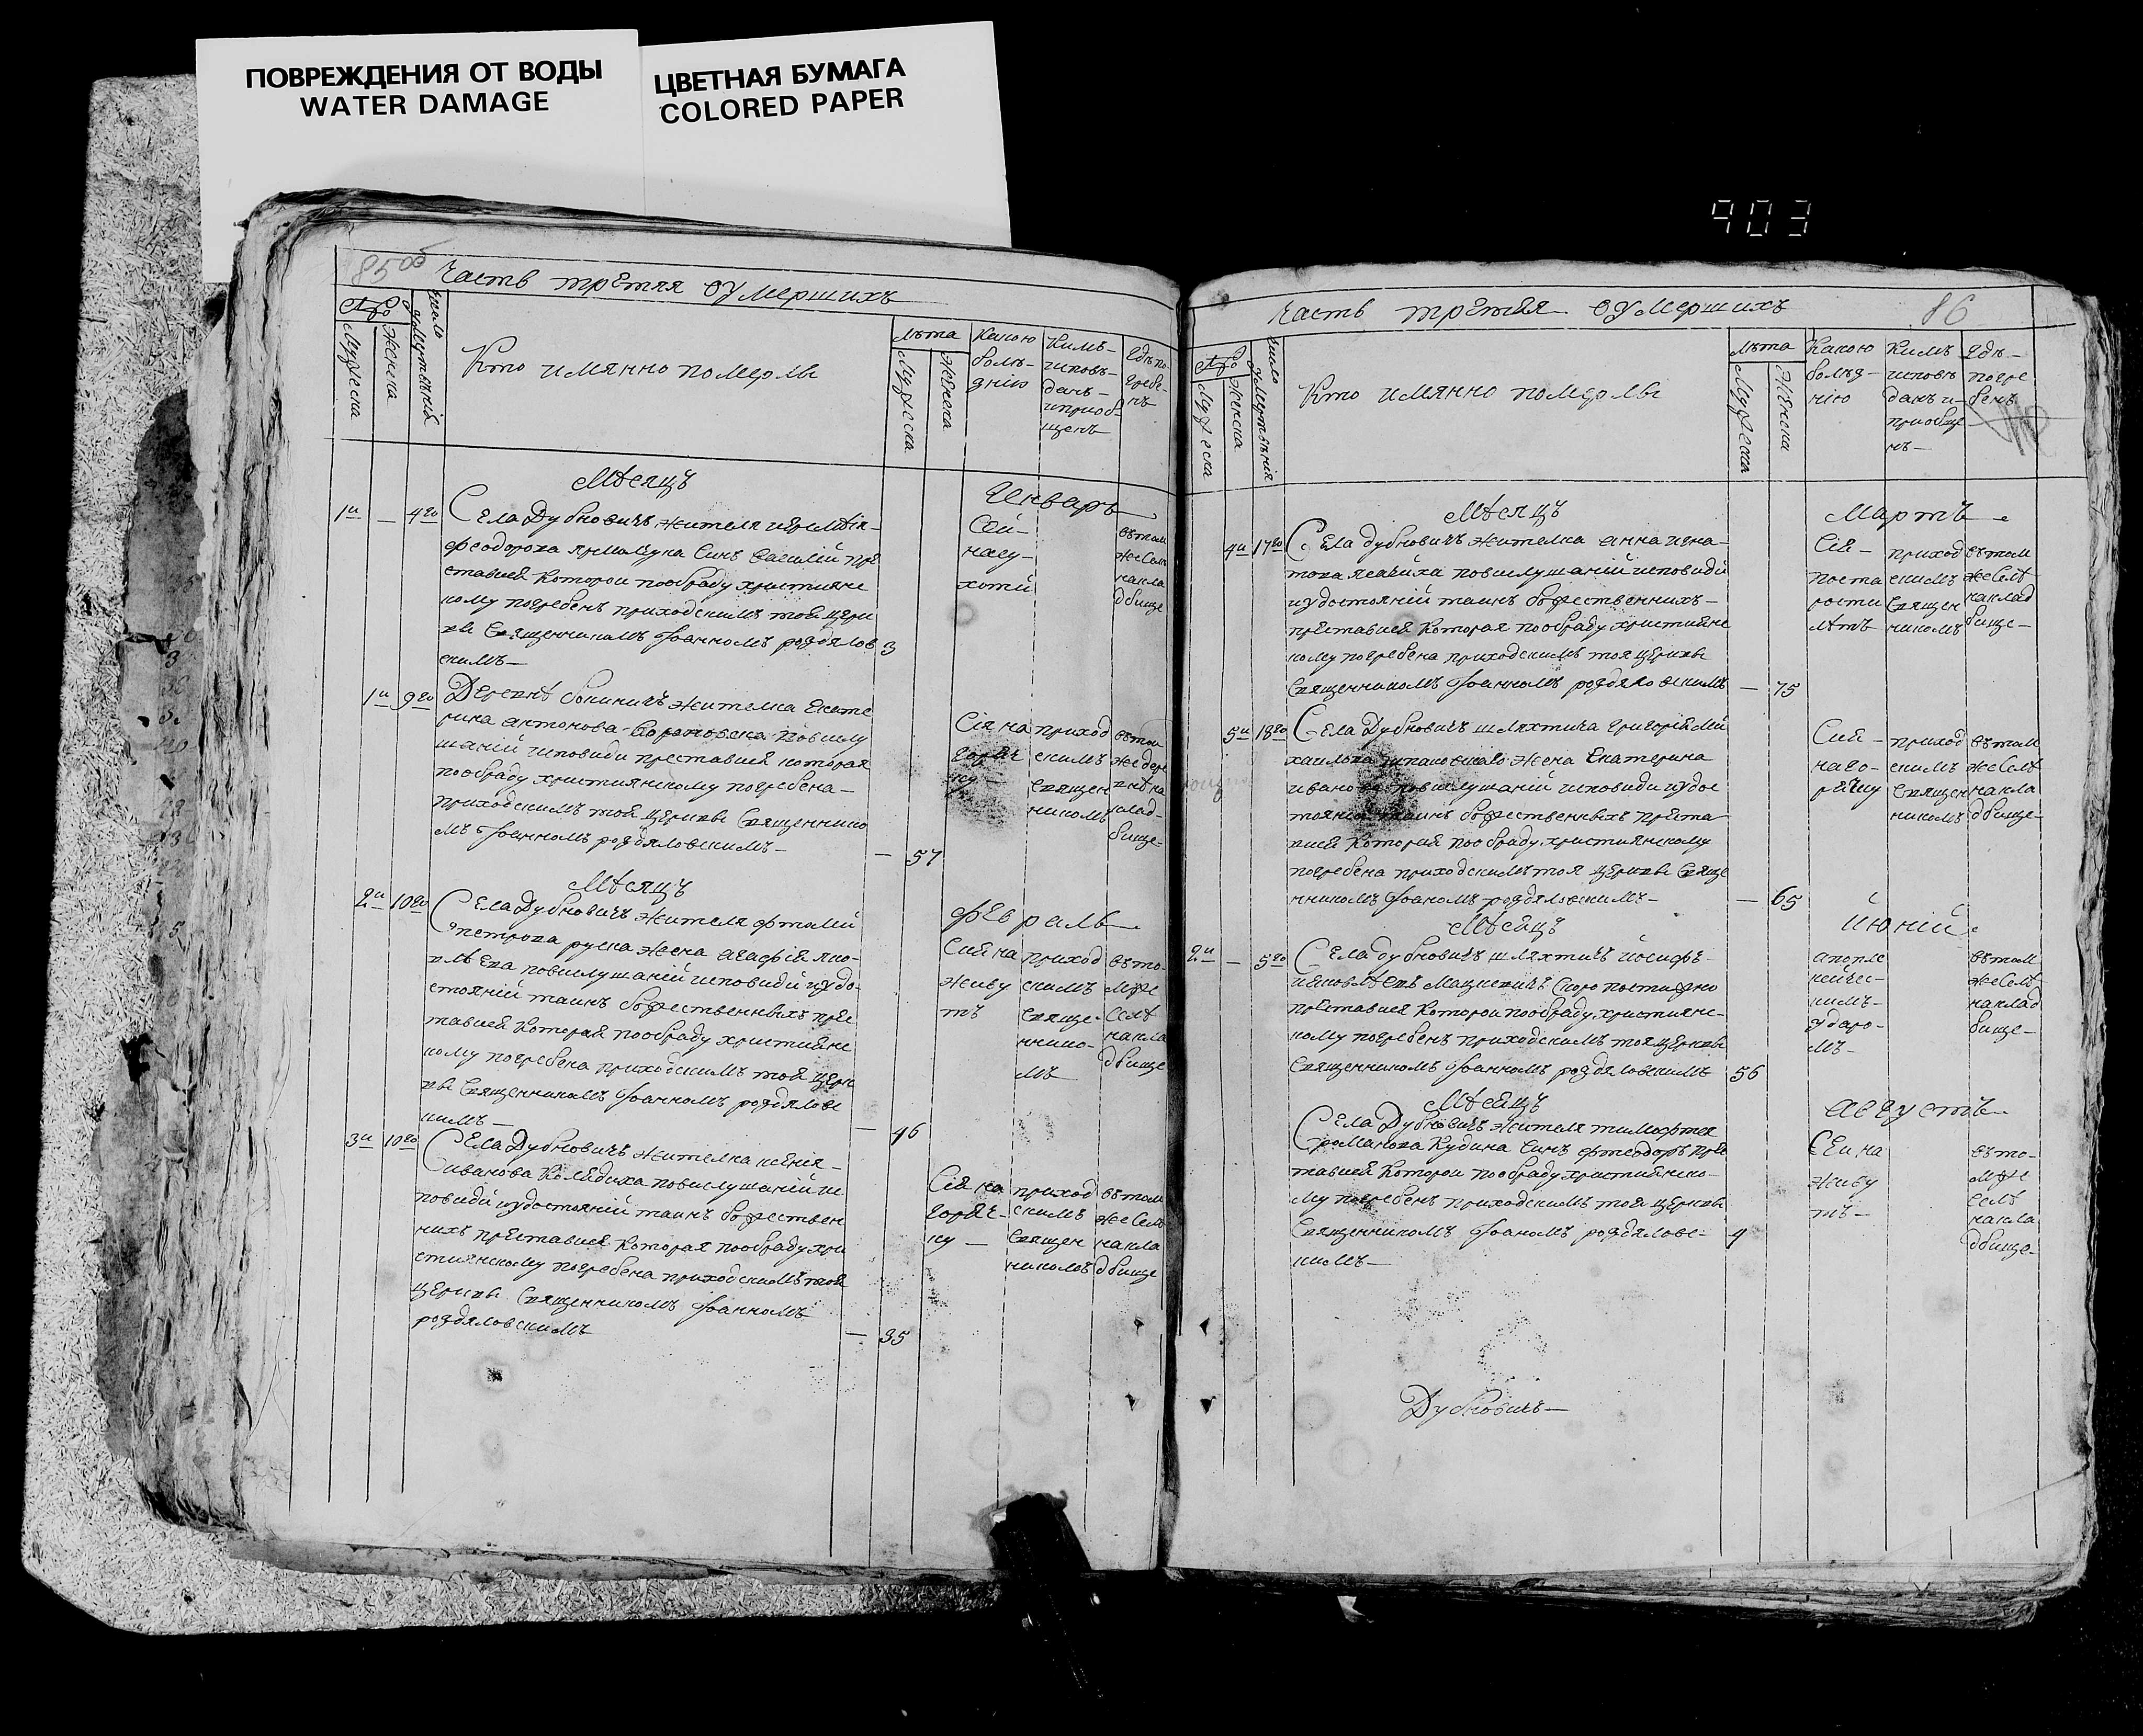 ПОВРЕЖДЕНИЯ ОТ ВОДЫ
WATER DAMAGE
ЦВЕТНАЯ БУМАГА
COLORED PAPER
903
85об
Часть третяя оумершихъ
Мужеска
Женска
число
Кто имянно померлъ
лѣта
Мужеска
Женска
Какою
болѣ-
знію
Кимъ-
исповѣ-
данъ-
и приоб-
щенъ
Гдѣ по-
гребе-
нъ
Мѣсяцъ
Генварь
1й — 4го
Села Дубновичъ жителя
феодорова Сынъ Василій пре
ставися которои пообряду християнс
кому погребенъ приходскимъ тоя церк
ви Священникомъ Іоанномъ роздялов
скимъ — 3
Сей-
насу-
хоти
втом
же Селѣ
накла
дбище
1й 9го
Деревнѣ жителка Екате
рина антонова повислу
шаніи исповѣди преставися которая
пообряду християнскому погребена —
приходскимъ тоя церкви Священнико
мъ Іоанномъ роздяловскимъ — — 57
Сія на
горяч
ку —
приход
скимъ
Священ
никомъ
втои
же дере
внѣ на
клад-
бище-
Мѣсяцъ
февраль
2й 10го
Села Дубновичъ жителя
петрова жена агафія яко-
влѣва повислушаніи исповѣди иудо-
стояніи таинъ божественныхъ прес
тавися которая пообряду християнс
кому погребена приходскимъ тоя церк
ви Священникомъ Іоанномъ роздяловс
кимъ — — 46
Сия на
живо
тъ
приход
скимъ
Свяще-
ннико-
мъ
въто-
мже
Селѣ
накла
дбище
3й 10го
Села Дубновичъ жителка ксенія-
иванова Колядиха повислушаніи ис
повѣди иудостояніи таинъ божествен
нихъ преставися которая пообряду хри
стиянскому погребена приходскимъ тоя
церкви Священникомъ Іоанномъ
роздяловскимъ — 35
Сія на
горяч-
ку —
приход
скимъ
Священ
никомъ
втом
же Селѣ
накла
дбище
Часть третяя оумершихъ
86
Мужеска
Женска
число
Кто имянно померлъ
лѣта
Мужеска
Женска
Какою
болѣз-
нію
Кимъ
исповѣ
данъ и-
приобще
нъ —
Гдѣ —
погре
бенъ
Мѣсяцъ
Мартъ
4й 17го
Села Дубновичъ жителка анна игна-
това повислушаніи исповѣди
иудостояніи таинъ божественнихъ —
преставися которая пообряду християнс
кому погребена приходскимъ тоя церкви
Священникомъ Іоанномъ роздяловскимъ — 75
Сія —
поста
рости
лѣтъ
приход
скимъ
Священ
никомъ
втом
же Селѣ
наклад
бище —
5й 18го
Села Дубновичъ шляхтича григорія ми
хаилова жена Екатерина
иванова повислушаніи исповѣди иудос
тояніи таинъ божественныхъ преста
вися которая пообряду християнскому
погребена приходскимъ тоя церкви Свяще
нникомъ Іоаномъ роздяловскимъ — — 65
Сия —
наго-
рячку
приход
скимъ
Священ
никомъ
втом
же Селѣ
накла
дбище-
Мѣсяцъ
июній
2й — 5го
Села дубновичъ шляхтичъ иосифъ-
ияковлѣвъ Мацкевичъ Скоропостижно
преставися которои пообряду християнс-
кому погребенъ приходскимъ тоя церкви
Священникомъ Іоанномъ роздяловскимъ 56
апопле
ксичес-
кимъ-
ударо-
мъ-
втом
же Селѣ-
наклад
бище —
Мѣсяцъ
августъ
Села Дубновичъ жителя тимофтея
романова Кудина Синъ фтеодоръ прес
тавися которои пообряду християнско-
му погребенъ приходскимъ тоя церкви
Священникомъ Іоаномъ роздяловс-
кимъ —
Сеи на
живо
тъ —
въто-
мже
селѣ
накла
дбище-
Дубновичъ —